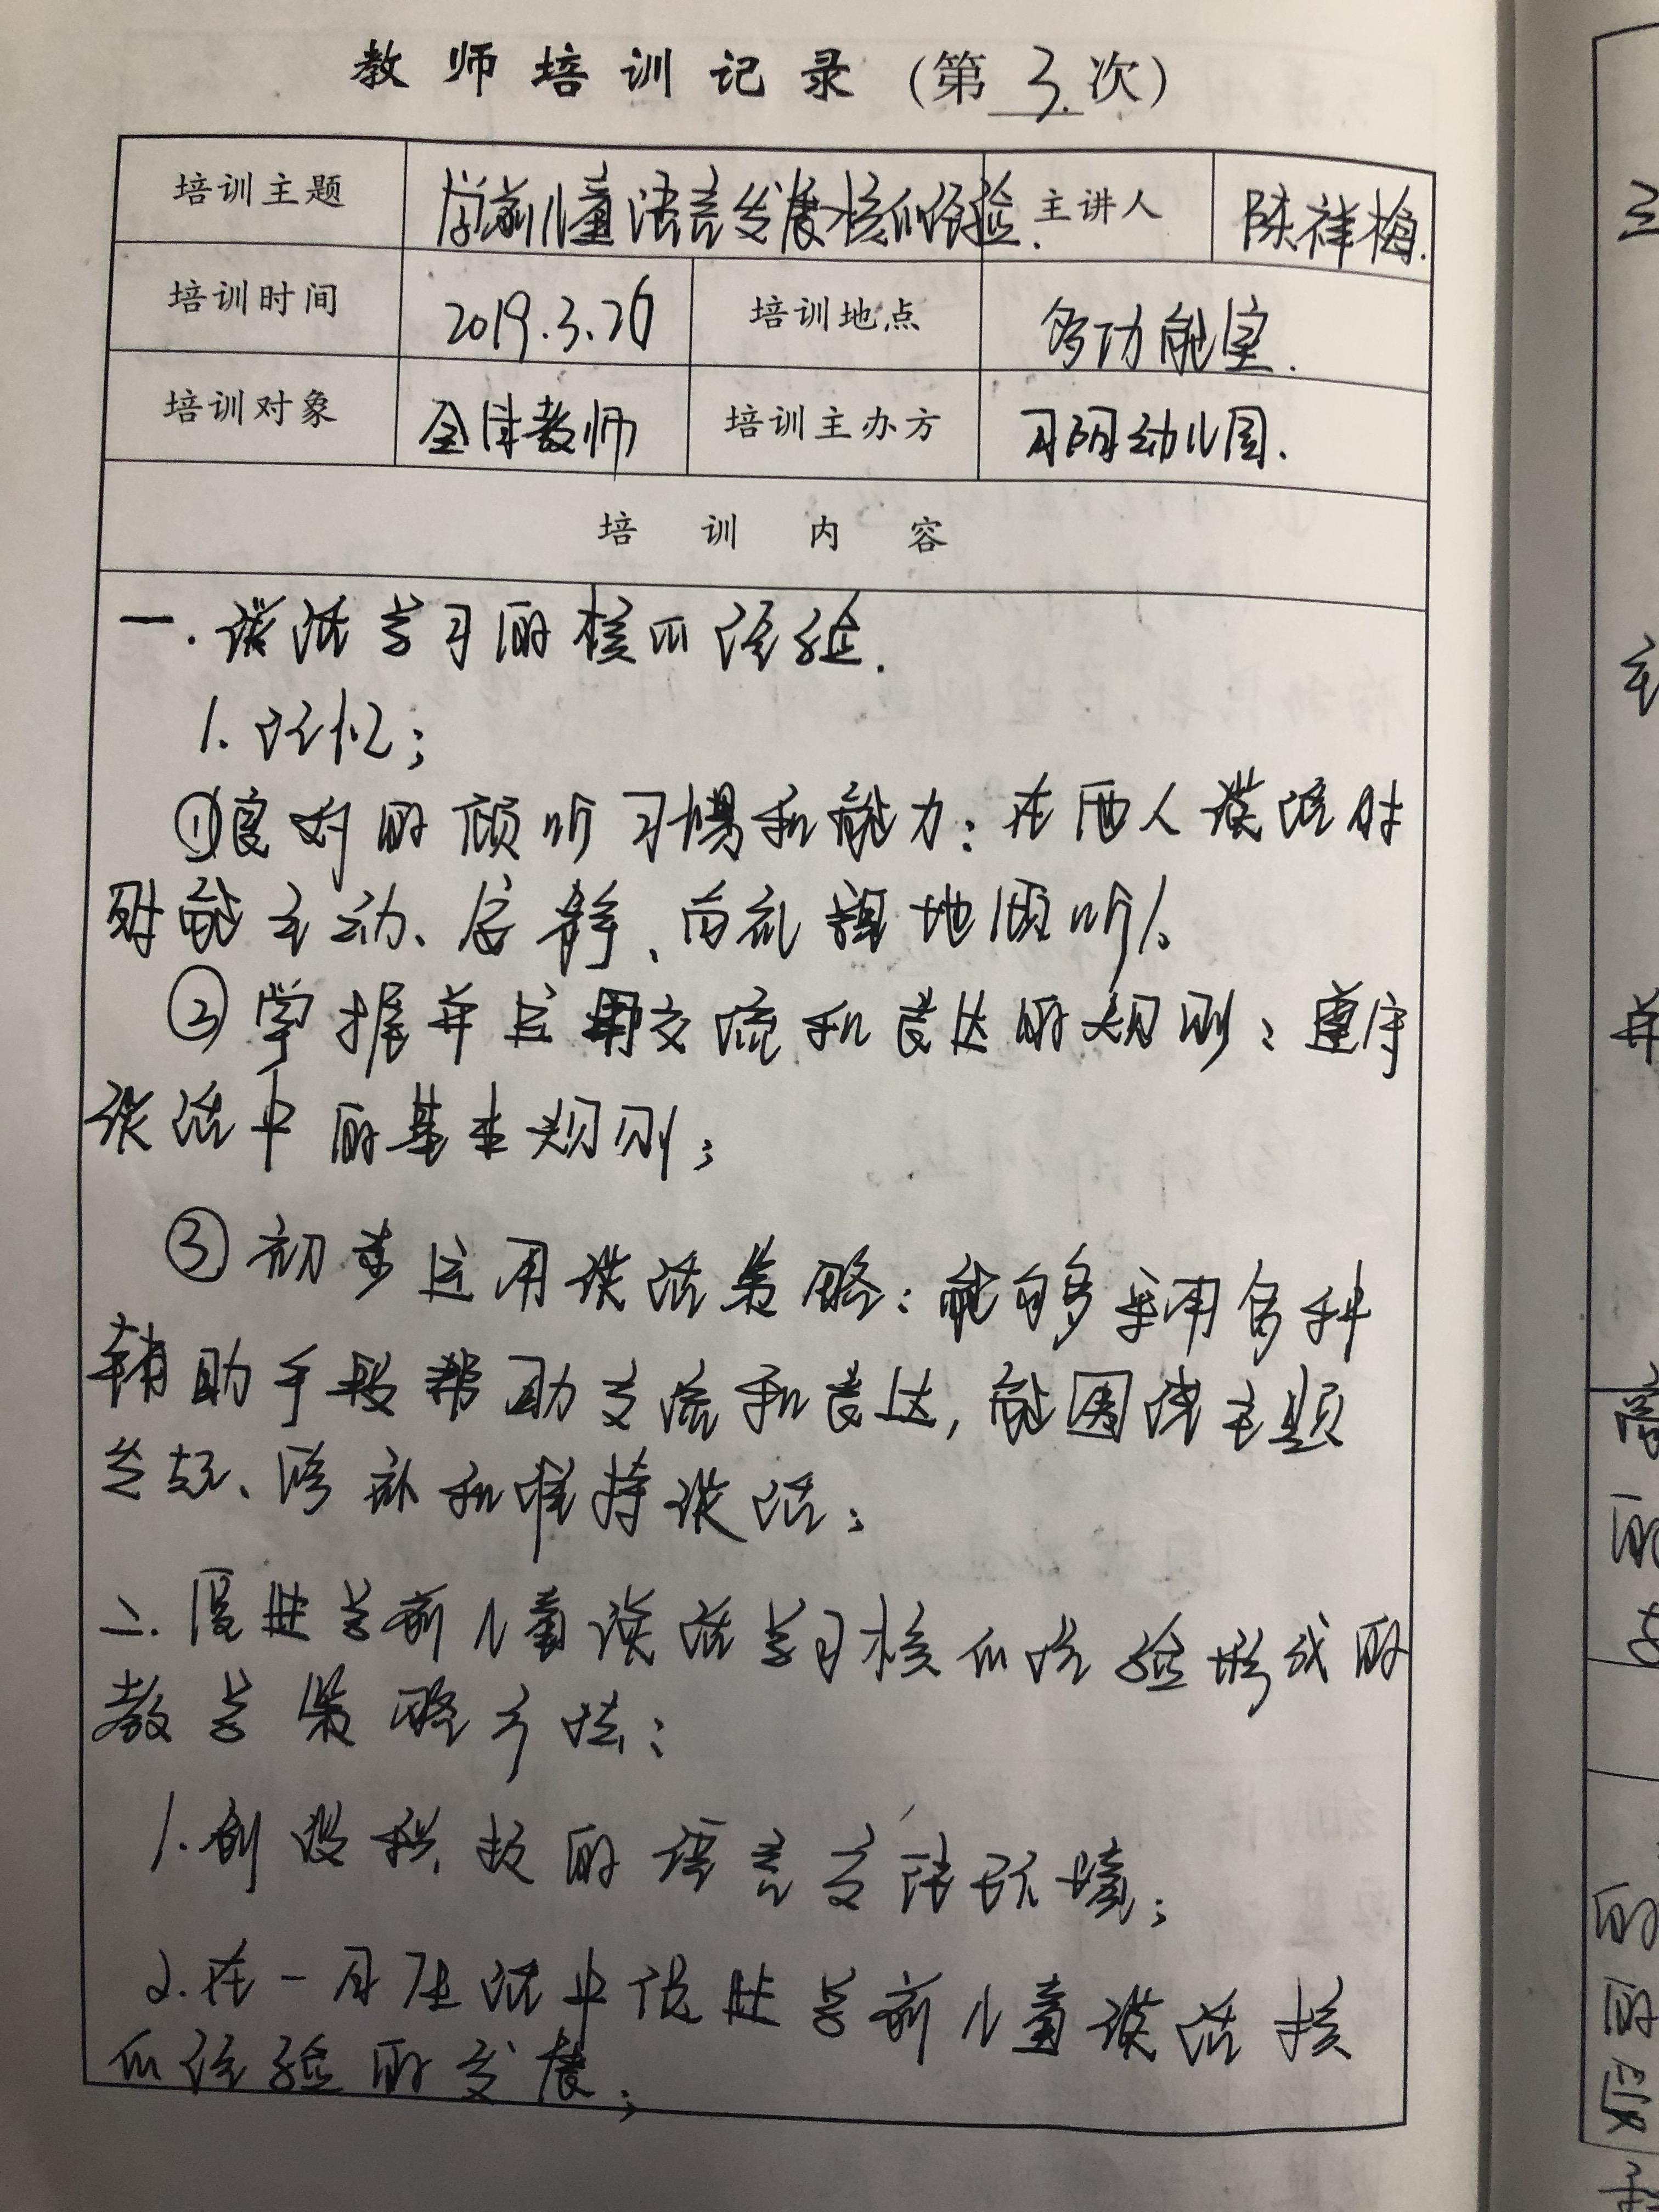 教师培训记录（第3次）
培训主题 学前儿童语言发展核心经验. 主讲人 陈祥梅.
培训时间 2019.3.26 培训地点 多功能室.
培训对象 全体教师 培训主办方 习阳幼儿园.
培训内容
一.谈话学习的核心经验.
1.记忆;
①良好的倾听习惯和能力:在两人谈话时
时能主动、安静、有礼貌地倾听。
②掌握并运用交流和表达的规则:遵守
谈话中的基本规则;
③初步运用谈话策略:能够采用多种
辅助手段帮助交流和表达,能围绕主题
发起、修补和维持谈话;
二.促进学前儿童谈话学习核心经验形成的
教学策略方法:
1.创设积极的语言交流环境;
2.在一日生活中促进学前儿童谈话核
心经验的发展;